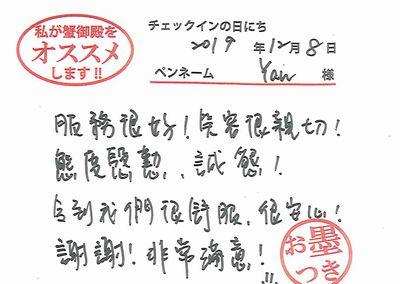 私が蟹御殿を
オススメ
します!!
チェックインの日にち
2019年12月8日
ペンネーム Yan 様
服務很好!笑容很親切!
態度慇懃、誠懇!
令到我們很舒服、很安心!
謝謝!非常滿意!!!
お墨
つき